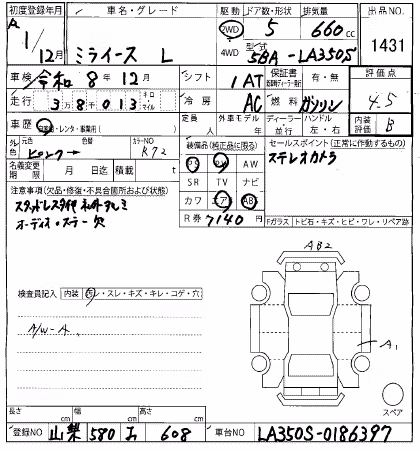 初度登録年月 車名・グレード 駆動 ドア数・形状 排気量 出品NO.
A 1/12月 ミライース L 2WD 5 660cc
4WD 型式 5BA-LA350S 1431
車検 令和 8年 12月 シフト 1 AT 保証書 有・無 評価点
走行 3万8千013 キロ マイル 冷房 AC 燃料 ガソリン 4.5
車歴 自家用・レンタ・事業用( ) 定員 人 外車モデル 年 ディーラー 並行 ハンドル 左・右 内装評価 B
外色 元色 ピンク→ カラーNO R72 装備品(純正品に限る) セールスポイント(正常に作動するもの)
PS PW AW ステレオカメラ
名義変更期限 月 日迄 積載 t SR TV ナビ
注意事項(欠品・修復・不具合箇所および状態) カワ エア AB
スタッドレスタイヤ
オーディオ・ステー 穴 R券 7140円 Fガラス トビ石・キズ・ヒビ・ワレ・リペア跡
AB2
検査員記入 内装 ・スレ・キズ・キレ・コゲ・穴
A/W-A
A1
スペア
長さ cm 幅 cm 高さ cm
登録NO 山梨 580 608 車台NO LA350S-0186397